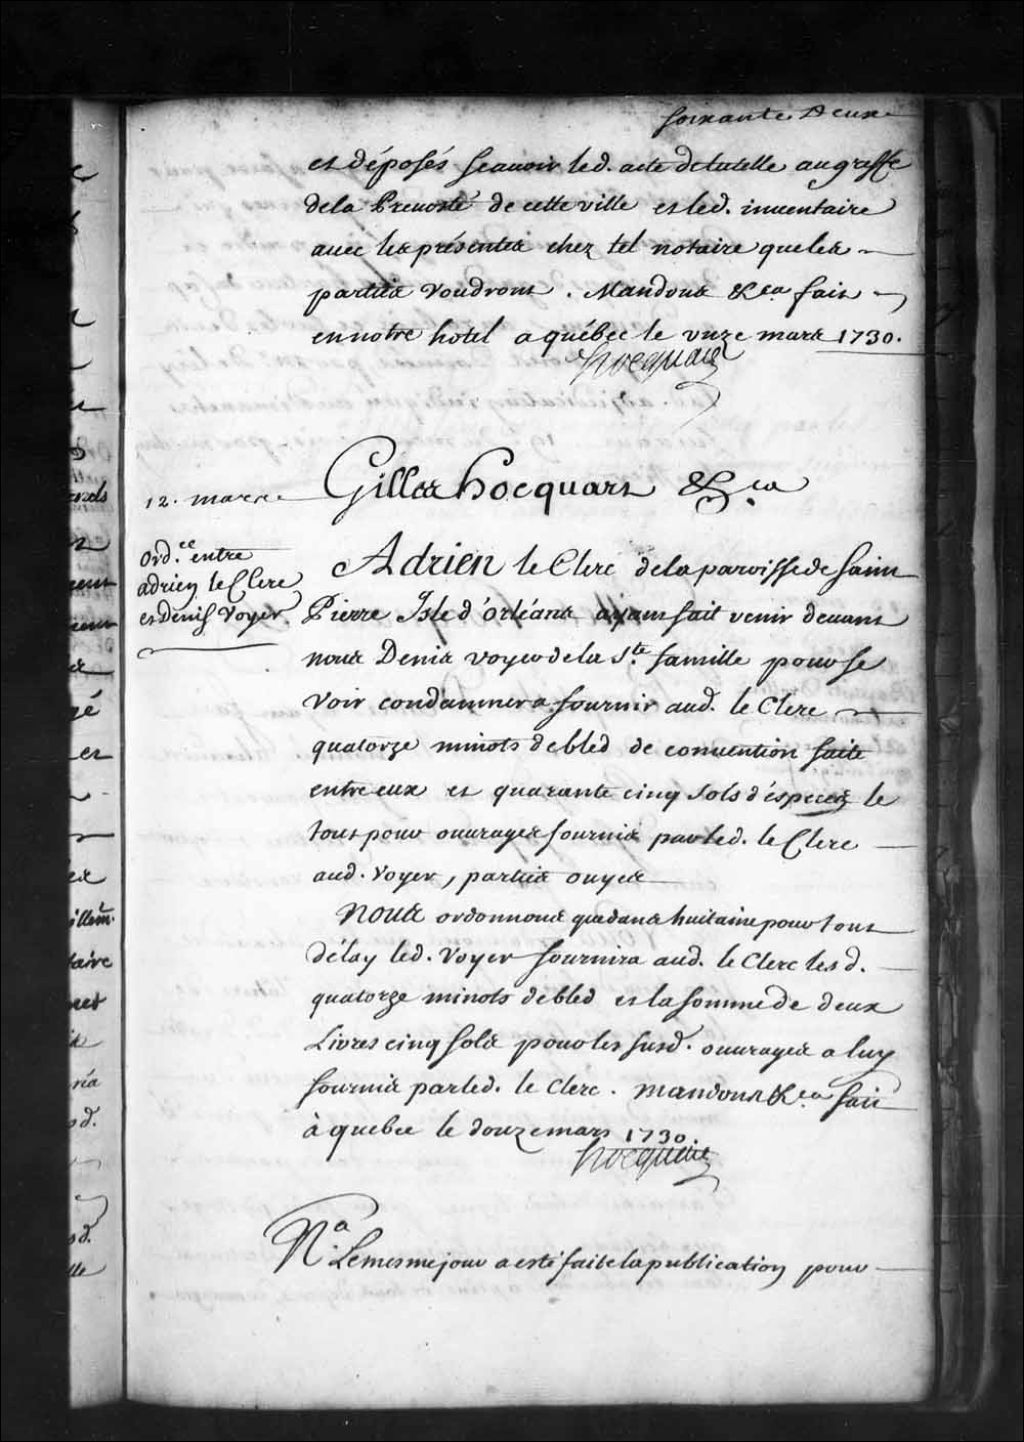 soixante Deux
et déposés Scauoir led. acte de tutelle au greffe
de la Preuosté de cette ville et led. inuentaire
auec les présentes chez tel notaire que les
parties voudront. Mandons &ca fait
en notre hotel a québec le vnze mars 1730.
hocquart
12. mars
Gilles hocquart &ca
Ord.ce entre
adrien le Clerc
et Denis Voyer.
Adrien le Clerc de la paroisse de saint
Pierre Isle d'orléans ayant fait venir deuant
nous Denis voyer de la Ste. famille pour se
voir condamner a fournir aud. le Clerc
quatorze minots de bled de conuention faite
entre eux et quarante cinq sols d'éspeces le
tout pour ouurages fournis par led. le Clerc
aud. Voyer, parties ouyes
Nous ordonnons que dans huitaine pour tout
délay led. Voyer fournira aud. le Clerc les d.
quatorze minots de bled et la somme de deux
Livres cinq sols pour les susd. ouurages a luy
fournis par led. le Clerc. Mandons &ca fait
à quebec le douze mars 1730.
hocquart
Na.
Le mesme jour a esté faite la publication pour